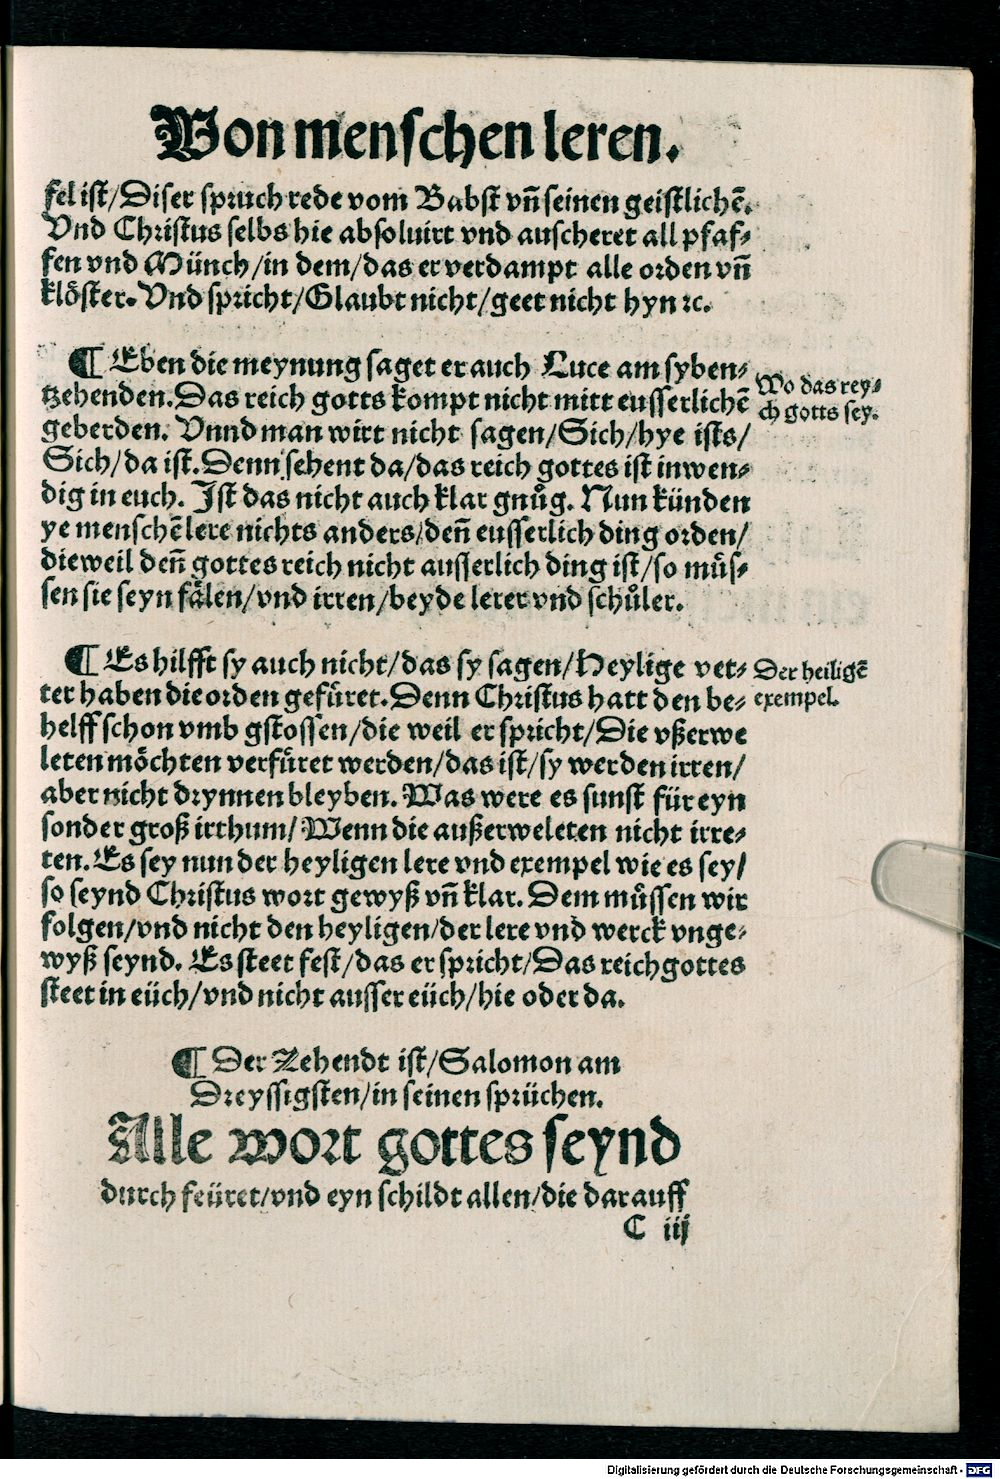 Von menschen leren.
fel ist/Diser spruch rede vom Babst vnd̄ seinen geistlichē.
Vnd Christus selbs hie absoluirt vnd auscheret all pfaf⸗
fen vnd Münch/in dem/das er verdampt alle orden vñ
klöster. Vnd spricht/Glaubt nicht/geet nicht hyn ꝛc.
¶ Eben die meynung saget er auch Luce am syben⸗
tzehenden. Das reich gotts kompt nicht mitt eusserlichē
geberden. Vnnd man wirt nicht sagen/Sich/hye ists/
Sich/da ist. Denn sehent da/das reich gottes ist inwen⸗
dig in euch. Ist das nicht auch klar gnůg. Nun künden
ye menschē lere nichts anders/deñ eusserlich ding orden/
dieweil deñ gottes reich nicht ausserlich ding ist/so müs⸗
sen sie seyn fälen/vnd irren/beyde lerer vnd schůler.
Wo das rey⸗
ch gotts sey.
¶ Es hilfft sy auch nicht/das sy sagen/Heylige vet⸗
ter haben die orden gefüret. Denn Christus hatt den be⸗
helff schon vmb gstossen/die weil er spricht/Die vßerwe
leten möchten verfüret werden/das ist/sy werden irren/
aber nicht drynnen bleyben. Was were es sunst für eyn
sonder groß irthum/Wenn die außerweleten nicht irre⸗
ten. Es sey nun der heyligen lere vnd exempel wie es sey/
so seynd Christus wort gewyß vñ klar. Dem müssen wir
folgen/vnd nicht den heyligen/der lere vnd werck vnge⸗
wyß seynd. Es steet fest/das er spricht/Das reich gottes
steet in eüch/vnd nicht ausser eüch/hie oder da.
Der heiligē
exempel.
¶ Der Zehendt ist/Salomon am
Dreyssigsten/in seinen sprüchen.
Alle wort gottes seynd
durch feüret/vnd eyn schildt allen/die darauff
C iij
Digitalisierung gefördert durch die Deutsche Forschungsgemeinschaft - DFG